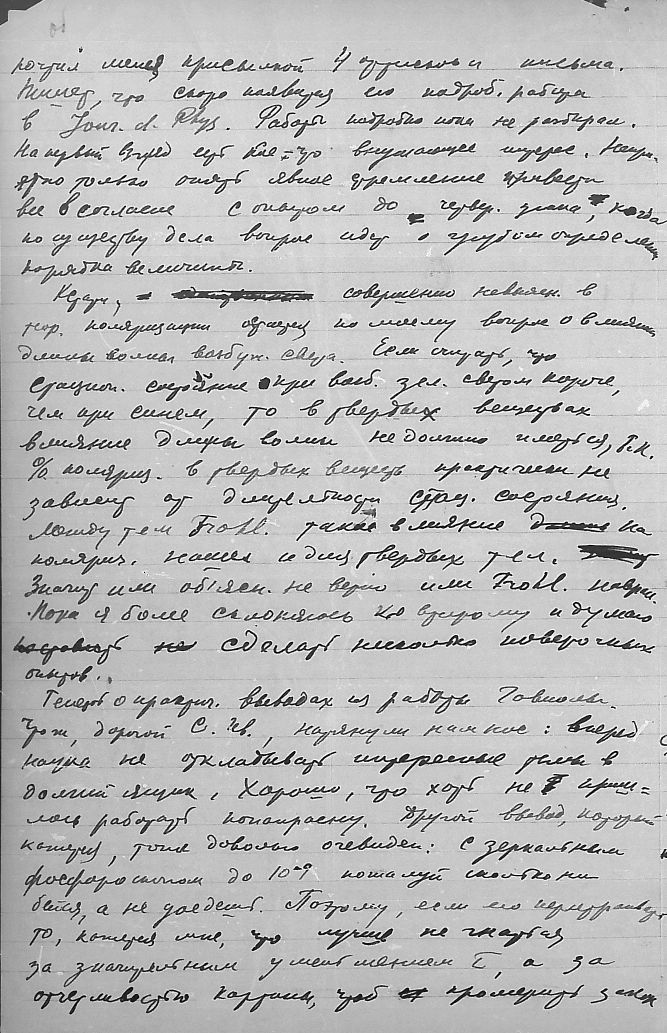 почтил меня присылкой 4 оттисков и письма.
Пишет, что скоро появится его подроб. работа
в Jour. d. Phys. Работы подробно пока не разбирал.
На первый взгляд есть кое-что внушающее интерес. Непри-
ятно только опять явное стремление привести
все в согласие с опытом до четвер. знака, когда
по существу дела вопрос идет о грубом определении
порядка величины.
Кстати, совершенно неясен. в
теор. поляризации остается по моему вопрос о влиянии
длины волны возбуж. света. Если считать, что
стацион. состояние при возб. зел. светом короче,
чем при синем, то в твердых веществах
влияние длины волны не должно иметься, т.к.
% поляриз. в твердых веществ практически не
зависит от длительности стац. состояния.
Между тем Frohl. такое влияние на
поляриз. нашел и для твердых тел.
Значит или объясн. не верно или Frohl. наврал.
Пока я более склоняюсь ко второму и думаю
сделать несколько поверочных
опытов.
Теперь о практич. выводах из работы Гавиолы.
Что ж, дорогой С. Ив., натянули нам нос: вперед
наука не откладывать интересные темы в
долгий ящик, Хорошо, что хоть не приш-
лось работать понапрасну. Другой вывод, который
кажется, тоже довольно очевиден: с зеркальным
фосфороскопом до 10⁻⁹ пожалуй сколько ни
бейся, а не доедешь. Поэтому, если его перестраивать
то, кажется мне, что лучше не гнаться
за значительным уменьшением τ, а за
отчетливостью картины, чтоб промерить закон